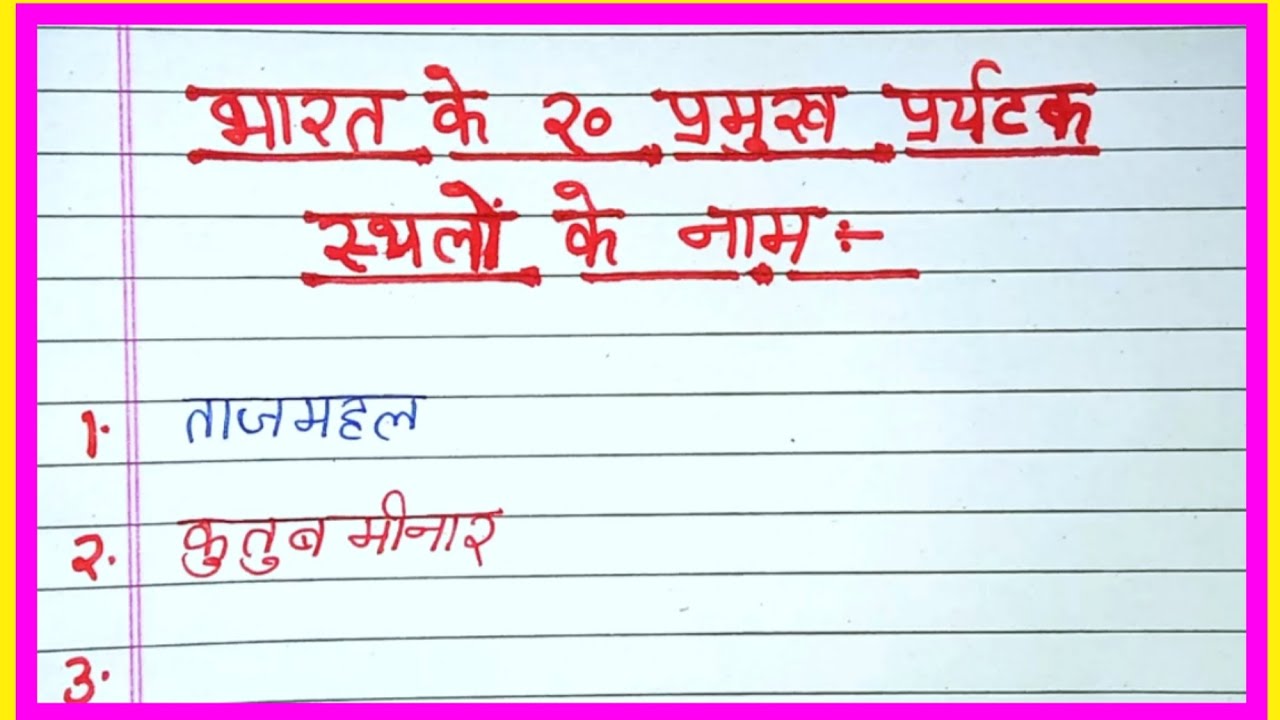 भारत के २० प्रमुख प्रर्यटक
स्थलों के नाम :-
१. ताजमहल
२. कुतुब मीनार
३.